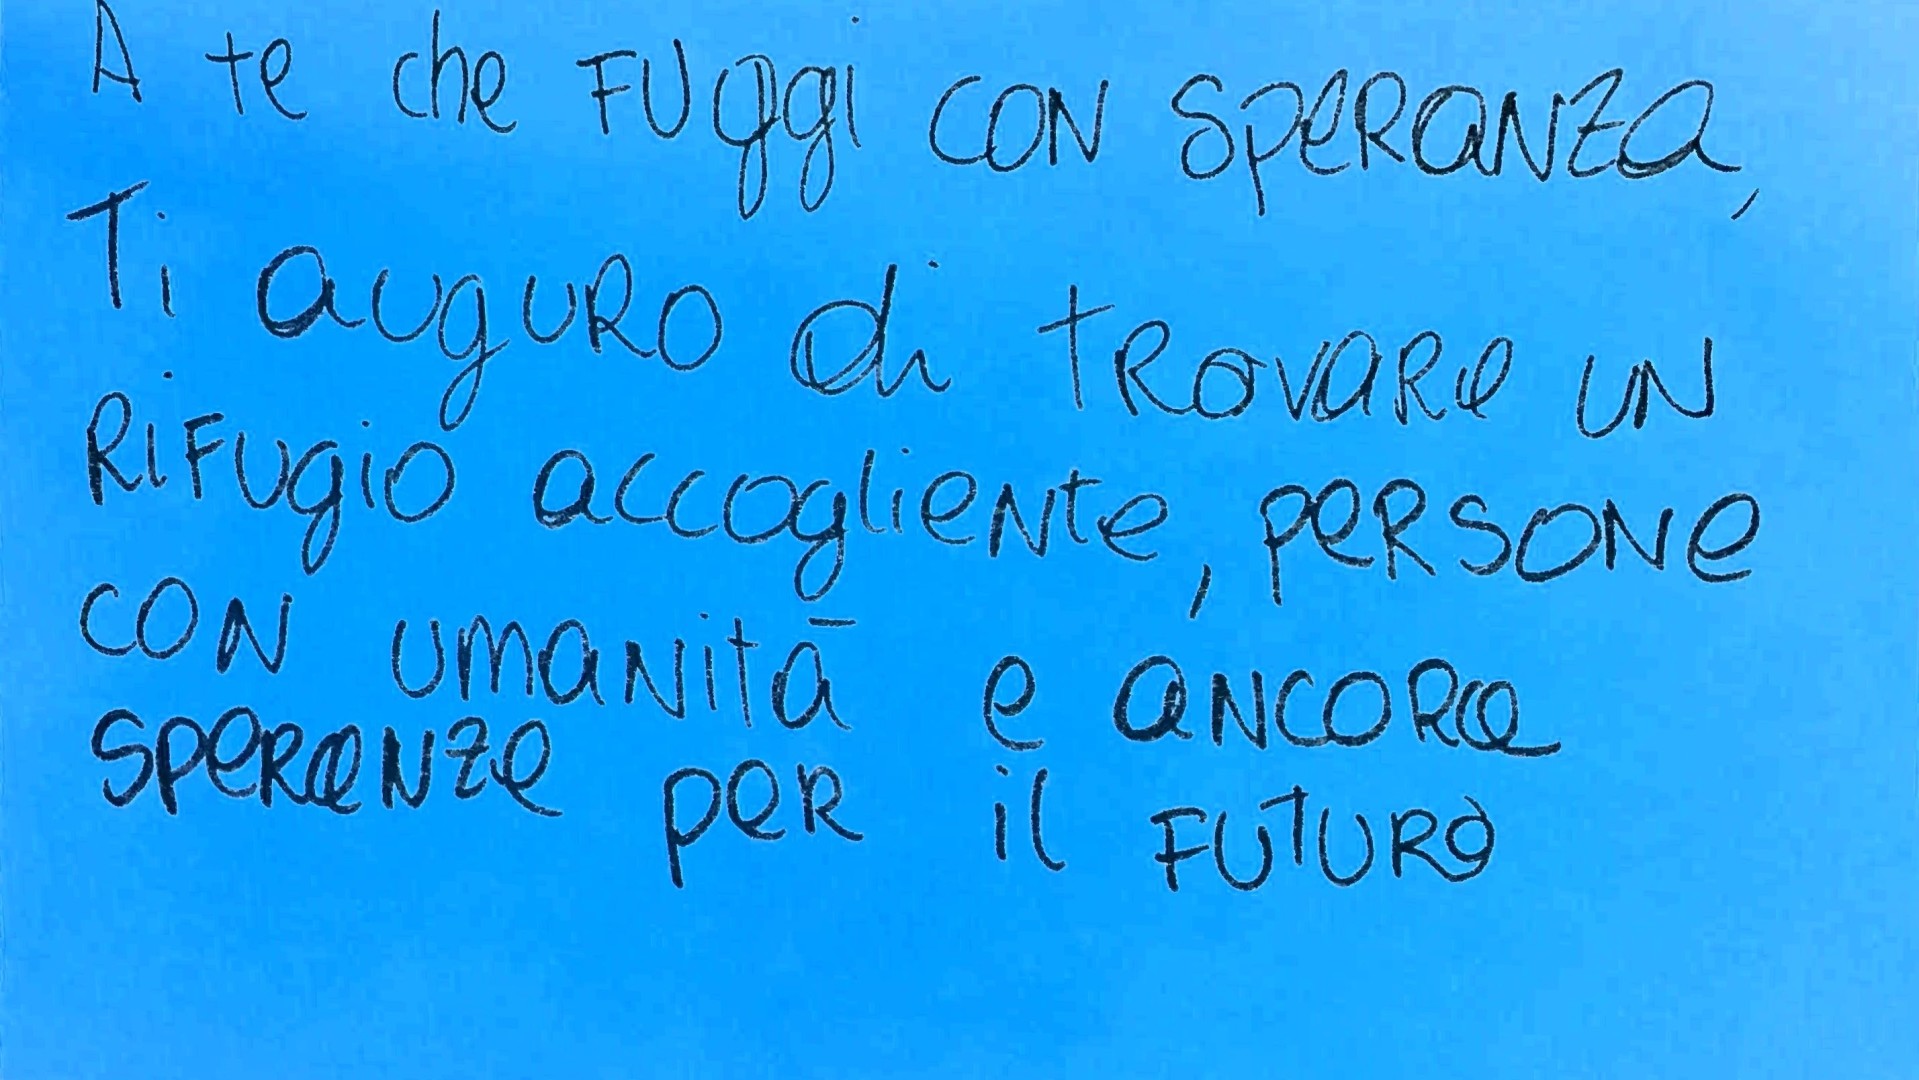 A te che FUggi CON SpeRaNZa,
Ti auguRO di tROVaRe UN
RiFUgiO accoglieNte, peRSONe
CON UmaNità e aNCORa
SpeRaNze peR il FUTURO